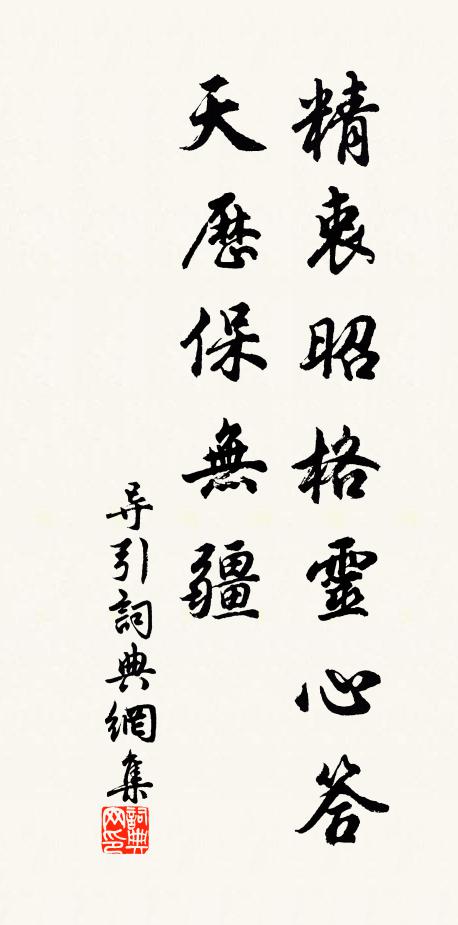 精衷昭格靈心答
天歷保無疆
导引詞典網集
詞典
网印